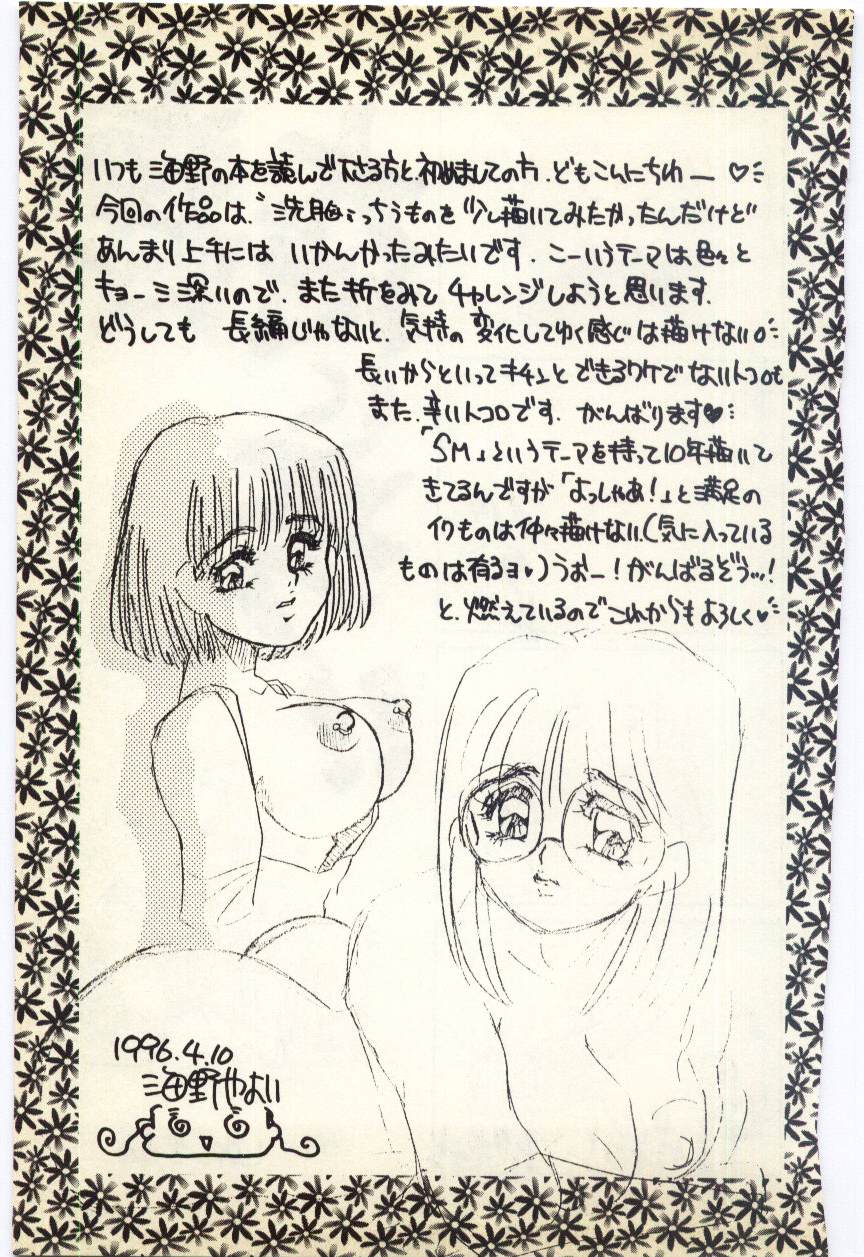 いつも海野の本を読んで下さる方と、初めましての方、どもこんにちわー♡
今回の作品は、"洗脳"っちうものを少し描いてみたかったんだけど
あんまり上手には いかんかったみたいです。こーいうテーマは色々と
キョーミ深いので、また折をみて チャレンジしようと思います。
どうしても 長編じゃないと、気持の変化してゆく感じは描けない。
長いからといってキチンとできるワケでないトコロも
また、辛いトコロです。がんばります♥
「SM」というテーマを持って10年描いて
きてるんですが「よっしゃあ!」と満足の
イクものは仲々描けない。(気に入っている
ものは有るヨ♥)うおー!がんばるぞうッ!
と、燃えているのでこれからもよろしく♥
1996.4.10
海野やよい